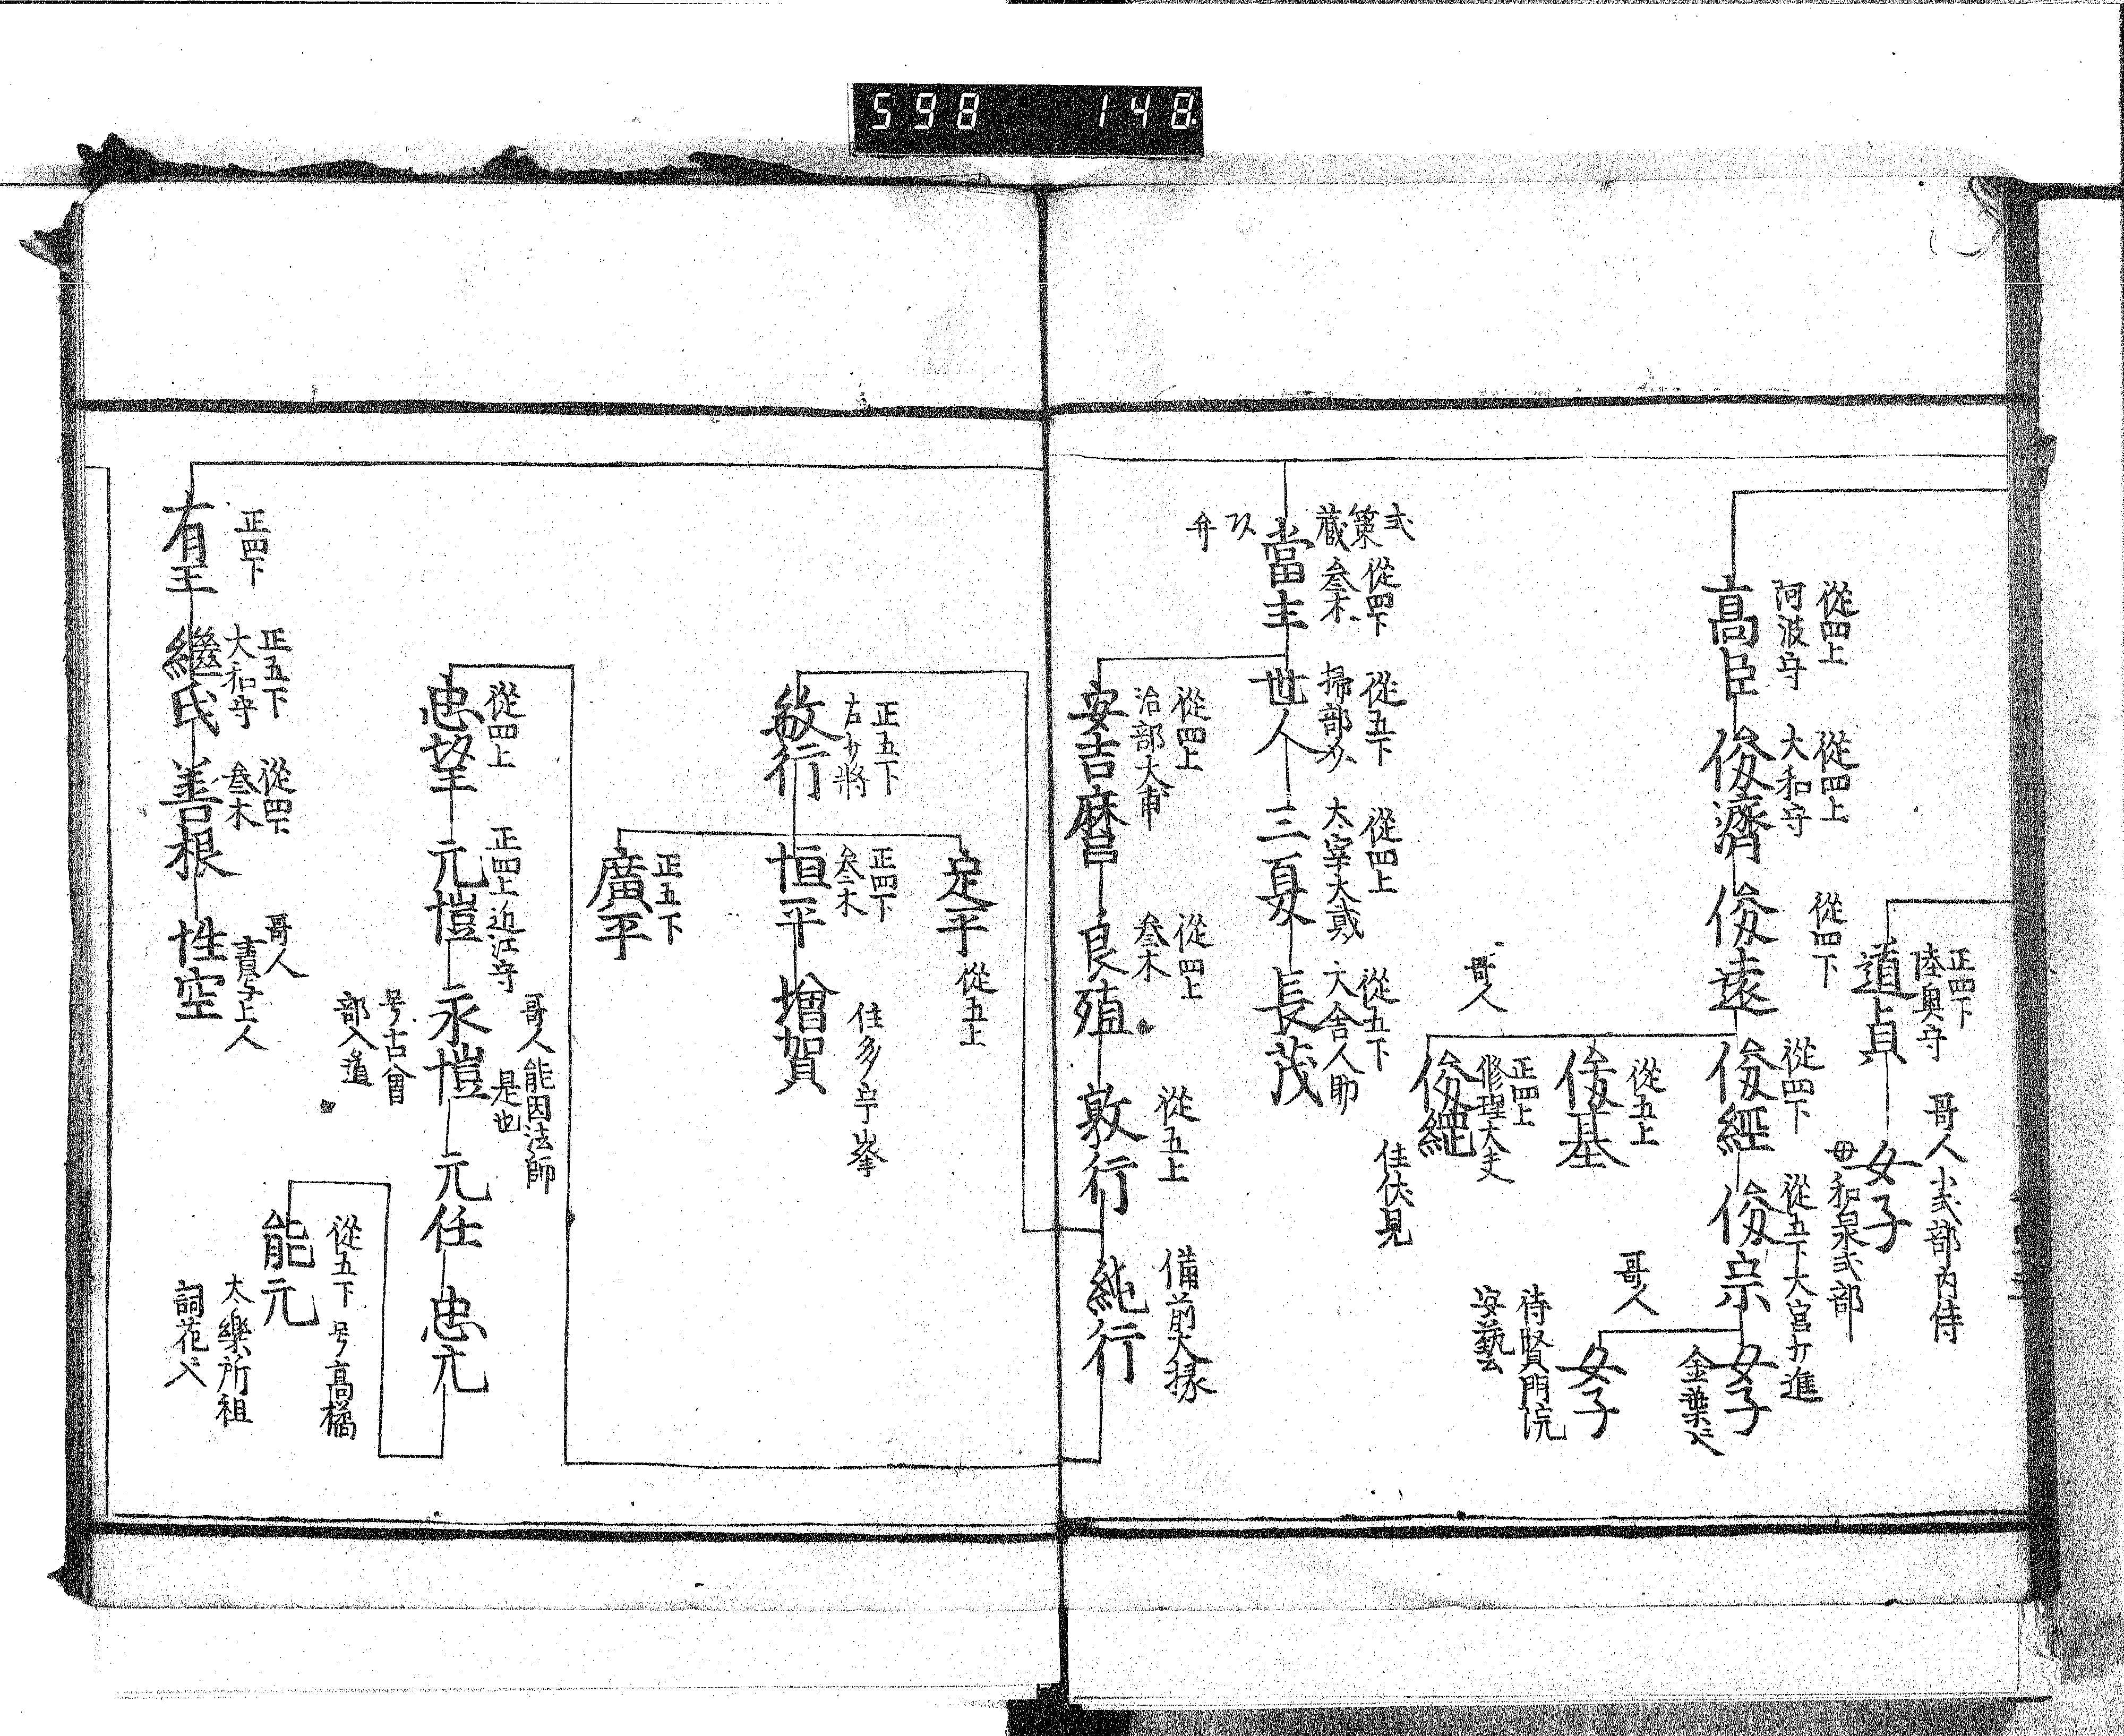 598 148
正四下
陸奥守
道貞
哥人小式部内侍
女子
母和泉式部
從四上
阿波守
高臣
從四上
大和守
俊濟
從四下
俊遠
從四下
俊經
從五下大宮少進
俊宗
女子
金葉
從五上
俊基
哥人
女子
待賢門院
安藝
哥人
正四上
修理大夫
俊綱
住伏見
式
策
蔵
從四下
叄木
當主
弁
從五下
掃部
世人
從四上
太宰大貳
三夏
從五下
大舎人助
長茂
從四上
治部大甫
安吉麿
從四上
叄木
良殖
從五上
敦行
備前大掾
純行
定平
從五上
正五下
右少將
敏行
正四下
叄木
恒平
増賀
住多宇峯
正五下
廣平
從四上
忠望
正四上近江守
元愷
哥人能因法師
是也
永愷
号古曾
部入道
元任
忠元
從五下号高橘
能元
太樂所祖
詞花
正四下
有王
正五下
大和守
繼氏
從四下
叄木
善根
哥人
書写上人
性空